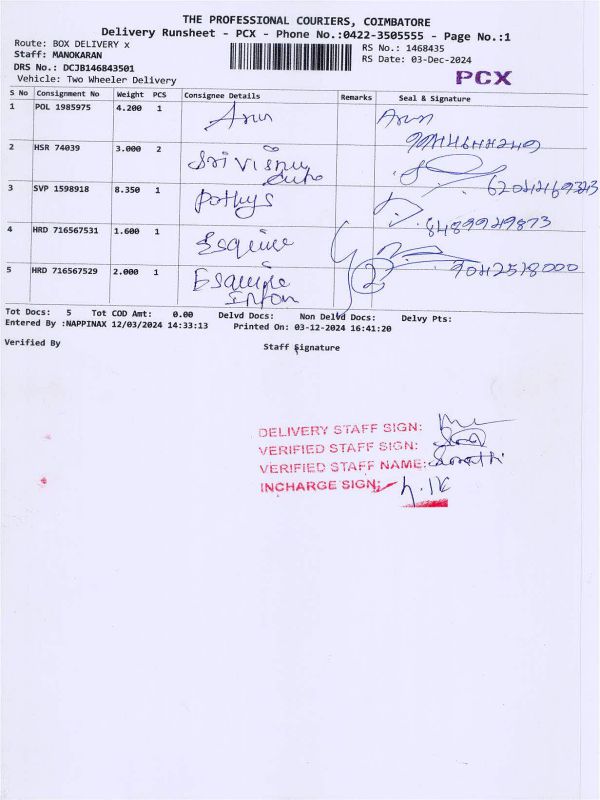 THE PROFESSIONAL COURIERS, COIMBATORE
Delivery Runsheet - PCX - Phone No.:0422-3505555 - Page No.:1
Route: BOX DELIVERY X
RS No.: 1468435
Staff: MANOKARAN
RS Date: 03-Dec-2024
DRS No.: DCJB146843501
PCX
Vehicle: Two Wheeler Delivery
S No Consignment No Weight PCS Consignee Details Remarks Seal & Signature
1 POL 1985975 4.200 1 Arun Arun
2 HSR 74039 3.000 2 Sri Vishnu
3 SVP 1598918 8.350 1 Pothys
8489949873
4 HRD 716567531 1.600 1 Esquire
5 HRD 716567529 2.000 1 Esquire 2 9042518000
Tot Docs: 5 Tot COD Amt: 0.00 Delvd Docs: Non Delvd Docs: Delvy Pts:
Entered By :NAPPINAX 12/03/2024 14:33:13 Printed On: 03-12-2024 16:41:20
Verified By Staff Signature
DELIVERY STAFF SIGN:
VERIFIED STAFF SIGN:
VERIFIED STAFF NAME:
INCHARGE SIGN: